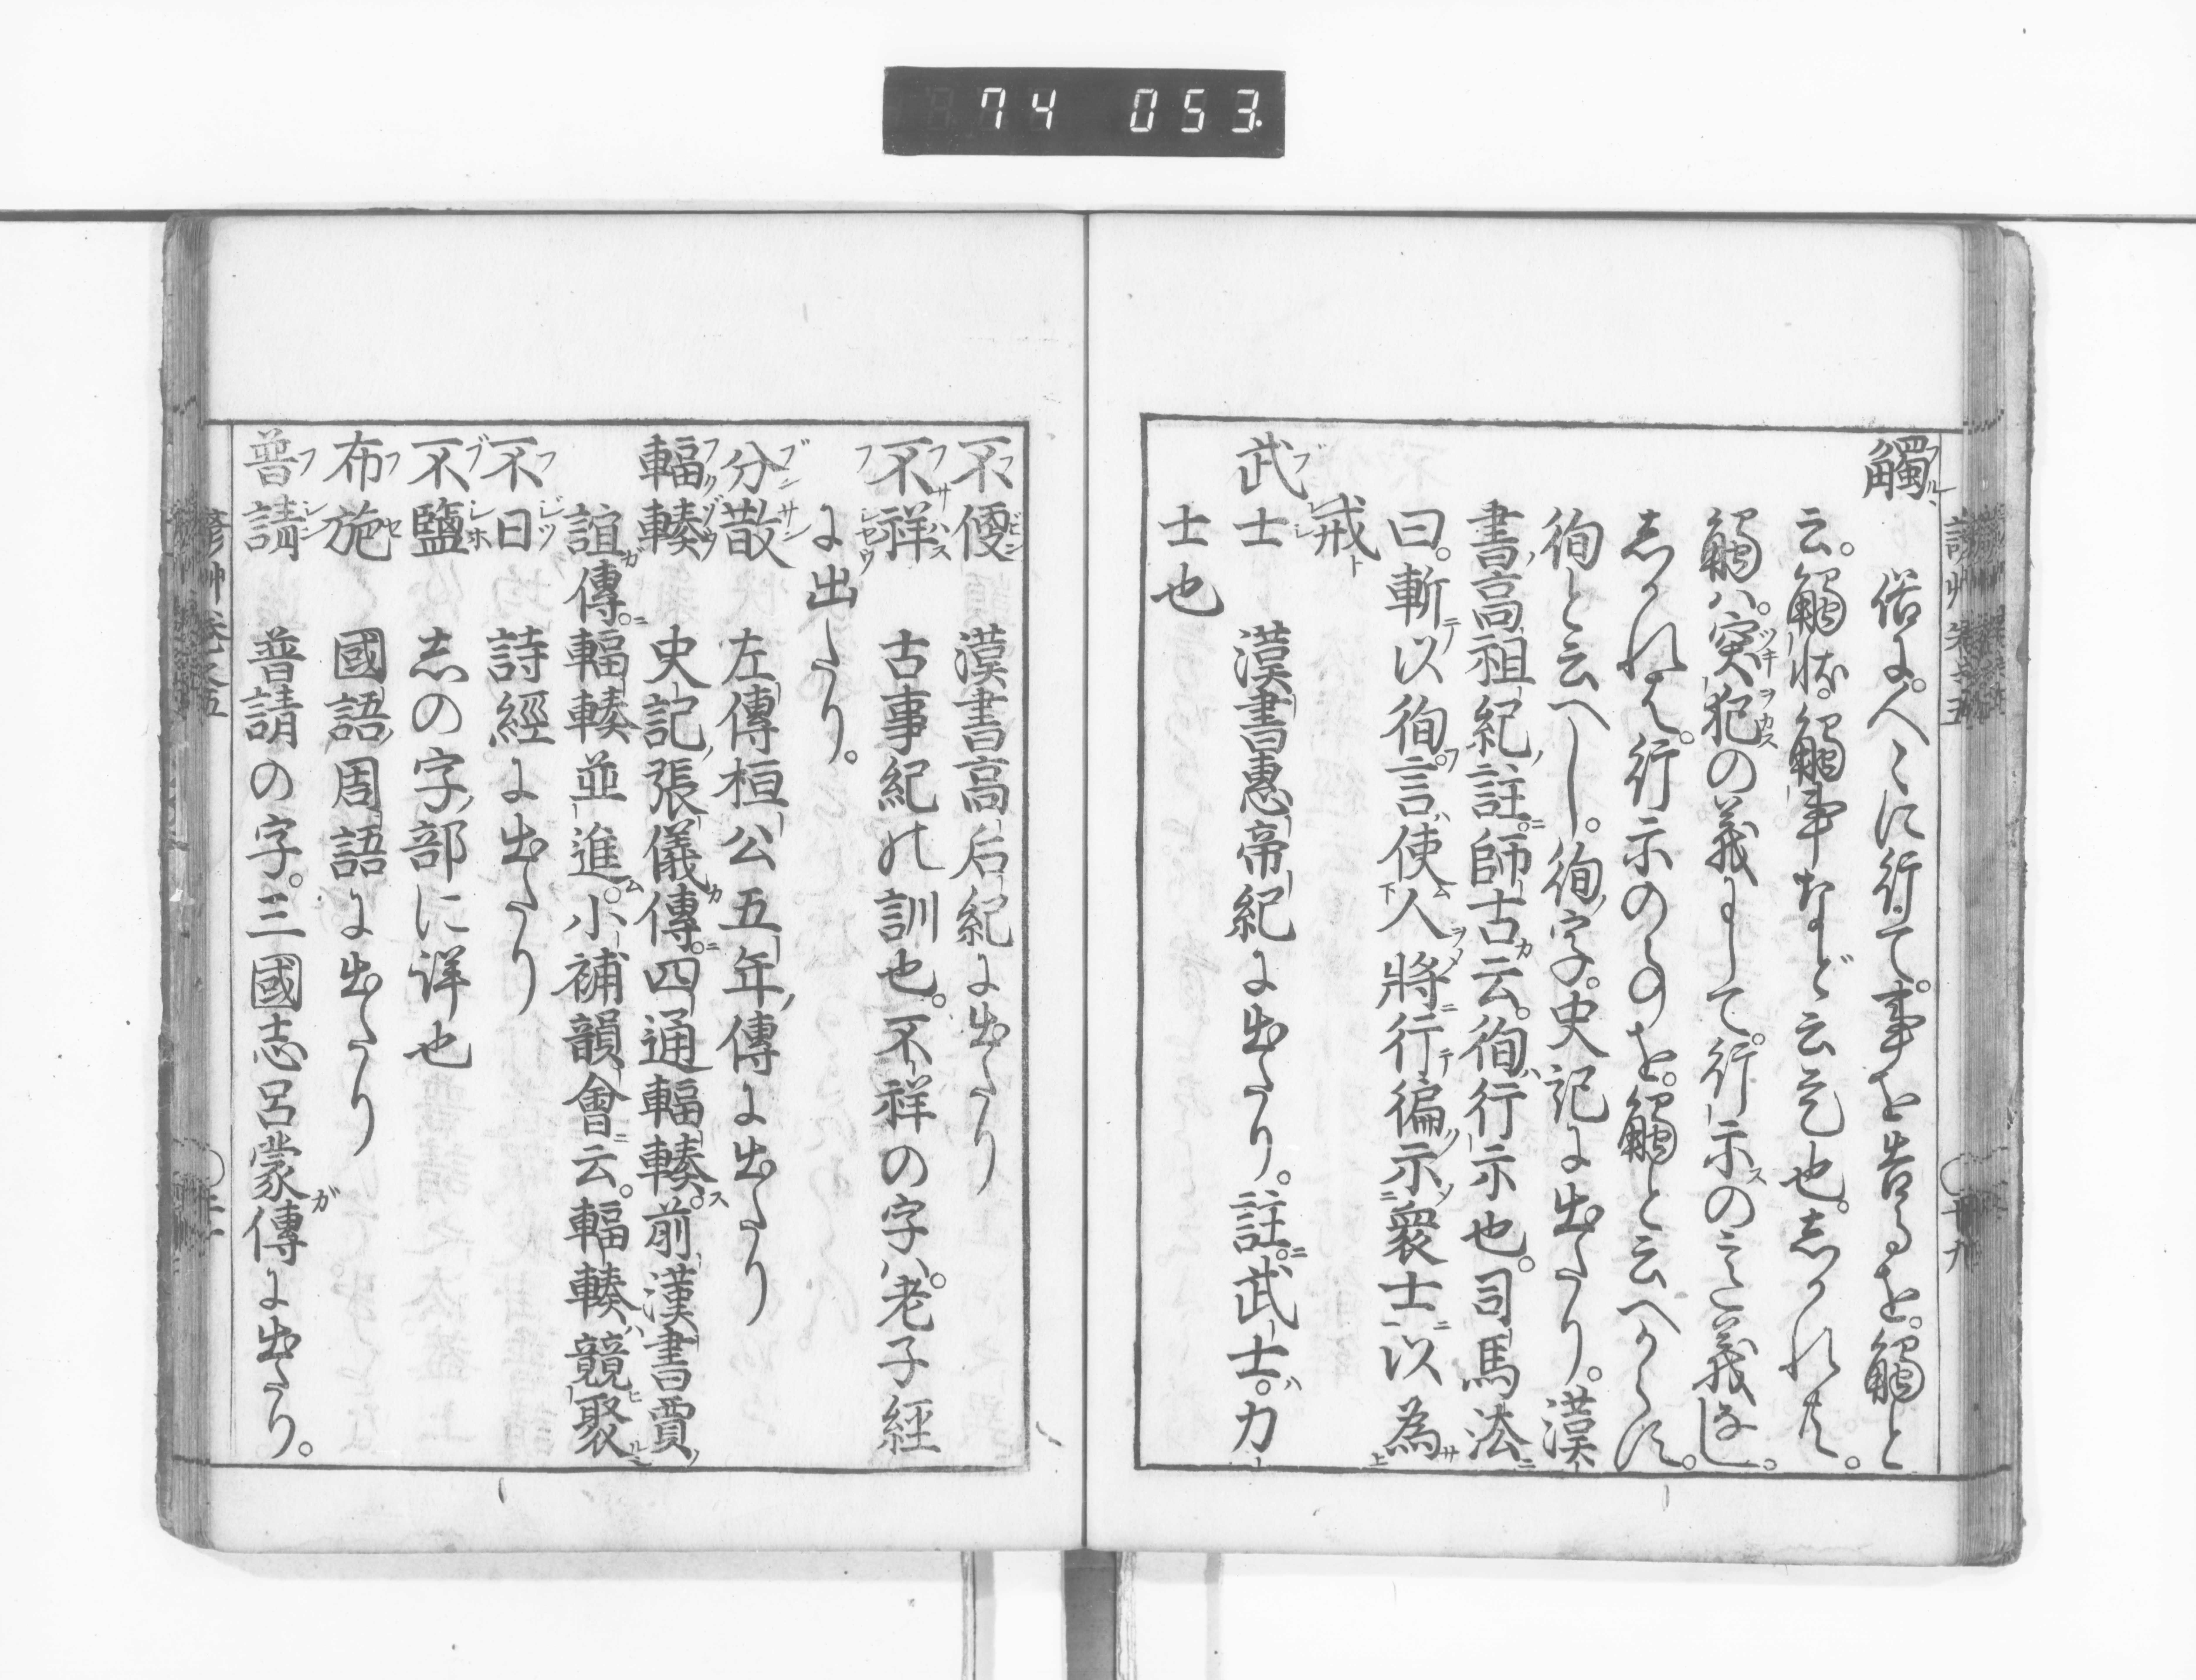 74 053
觸 俗に。人〻に行て。事を告るを。觸と
云。觸状。觸事など云是也。しかれ共。
觸ハ。突犯の義にして。行示のこゝ義なし。
しかれは。行示のものを。觸と云へからす。
徇と云へし。徇ノ字。史記に出たり。漢
書ノ高祖紀ノ註ニ。師古カ云。徇ハ行示也。司馬法ニ
曰。斬テ以徇。言ハ使人將行テ徧示衆士ニ以為
戒ト
武士 漢書惠帝紀に出たり。註ニ。武士ハ。力
士也
不便 漢書高后紀に出たり
不祥 古事紀の訓也。不祥の字ハ。老子經
に出たり。
分散 左傳桓公五年ノ傳に出たり
輻輳 史記ノ張儀カ傳ニ。四通輻輳ス。前漢書賈
誼ガ傳ニ。輻輳並進。小補韻會ニ云。輻輳ハ競聚
不日 詩經に出たり
不鹽 志の字ノ部に詳也
布施 國語ノ周語に出たり
普請 普請の字。三國志呂蒙ガ傳に出たり。